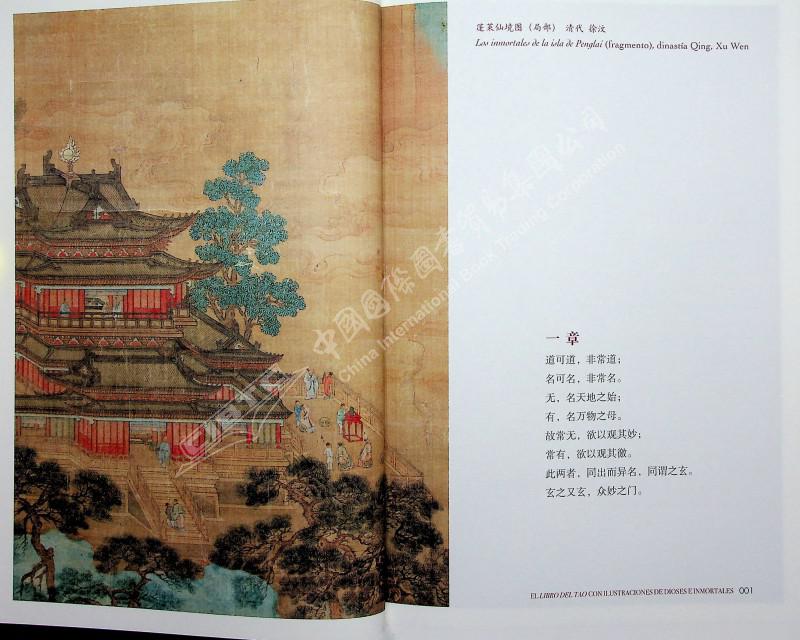 蓬莱仙境图（局部） 清代 徐汶
Los inmortales de la isla de Penglai (fragmento), dinastía Qing, Xu Wen
一 章
道可道，非常道；
名可名，非常名。
无，名天地之始；
有，名万物之母。
故常无，欲以观其妙；
常有，欲以观其徼。
此两者，同出而异名，同谓之玄。
玄之又玄，众妙之门。
EL LIBRO DEL TAO CON ILUSTRACIONES DE DIOSES E INMORTALES 001
中國國際圖書貿易集團公司
China International Book Trading Corporation